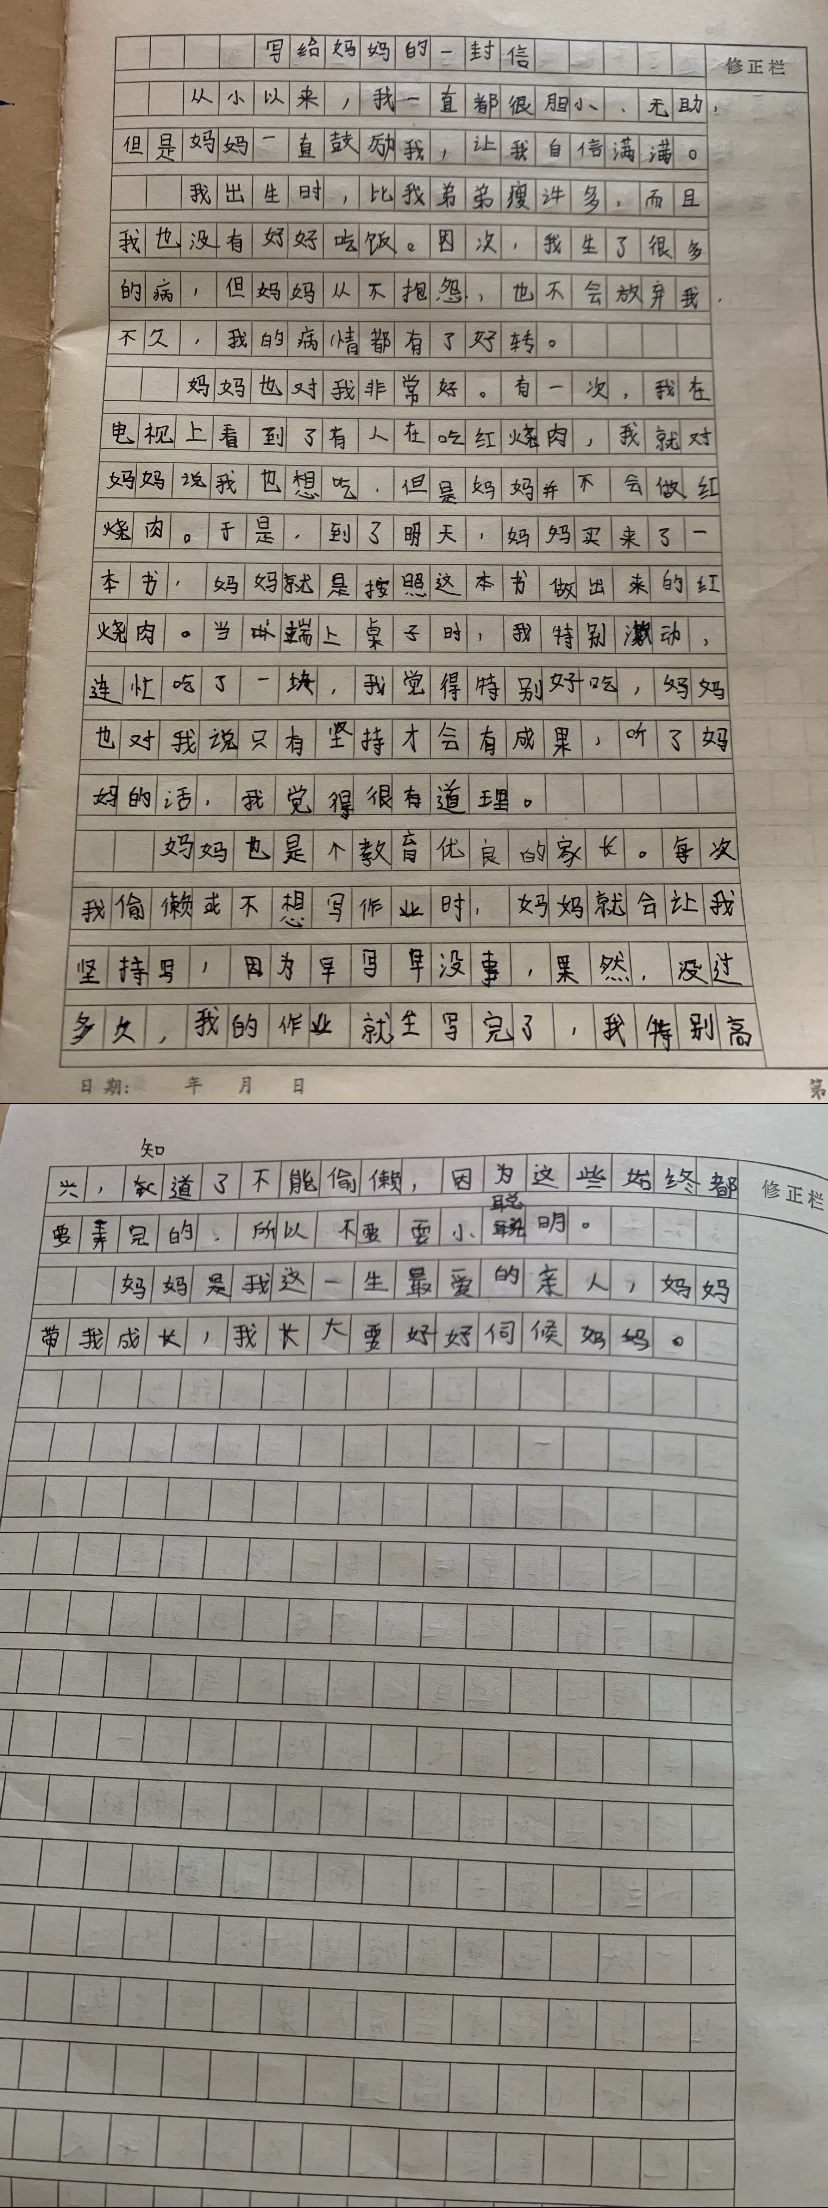 写给妈妈的一封信
修正栏
从小以来，我一直都很胆小、无助，
但是妈妈一直鼓励我，让我自信满满。
我出生时，比我弟弟瘦许多，而且
我也没有好好吃饭。因次，我生了很多
的病，但妈妈从不抱怨，也不会放弃我，
不久，我的病情都有了好转。
妈妈也对我非常好。有一次，我在
电视上看到了有人在吃红烧肉，我就对
妈妈说我也想吃，但是妈妈并不会做红
烧肉。于是，到了明天，妈妈买来了一
本书，妈妈就是按照这本书做出来的红
烧肉。当端上桌子时，我特别激动，
连忙吃了一块，我觉得特别好吃，妈妈
也对我说只有坚持才会有成果，听了妈
妈的话，我觉得很有道理。
妈妈也是个教育优良的家长。每次
我偷懒或不想写作业时，妈妈就会让我
坚持写，因为早写早没事，果然，没过
多久，我的作业就全写完了，我特别高
日期： 年 月 日
第
知
兴，道了不能偷懒，因为这些始终都
要弄完的，所以不要耍小聪明。
修正栏
妈妈是我这一生最爱的亲人，妈妈
带我成长，我长大要好好伺候妈妈。